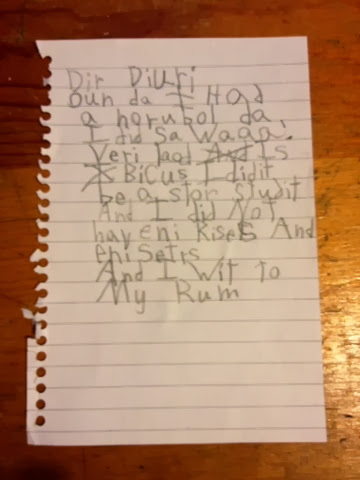 Dir Diuri
Oun da I Had
a horubol da
I did sa Waaa!
Veri laod Is
BiCus I didit
be a stor studit
And I did Not
hav eni Rises And
eni Setrs
And I Wit to
My Rum